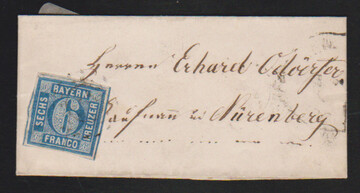 Herrn Erhard Odörfer
Kaufmann in Nürenberg
BAYERN
SECHS
6
KREUZER
FRANCO